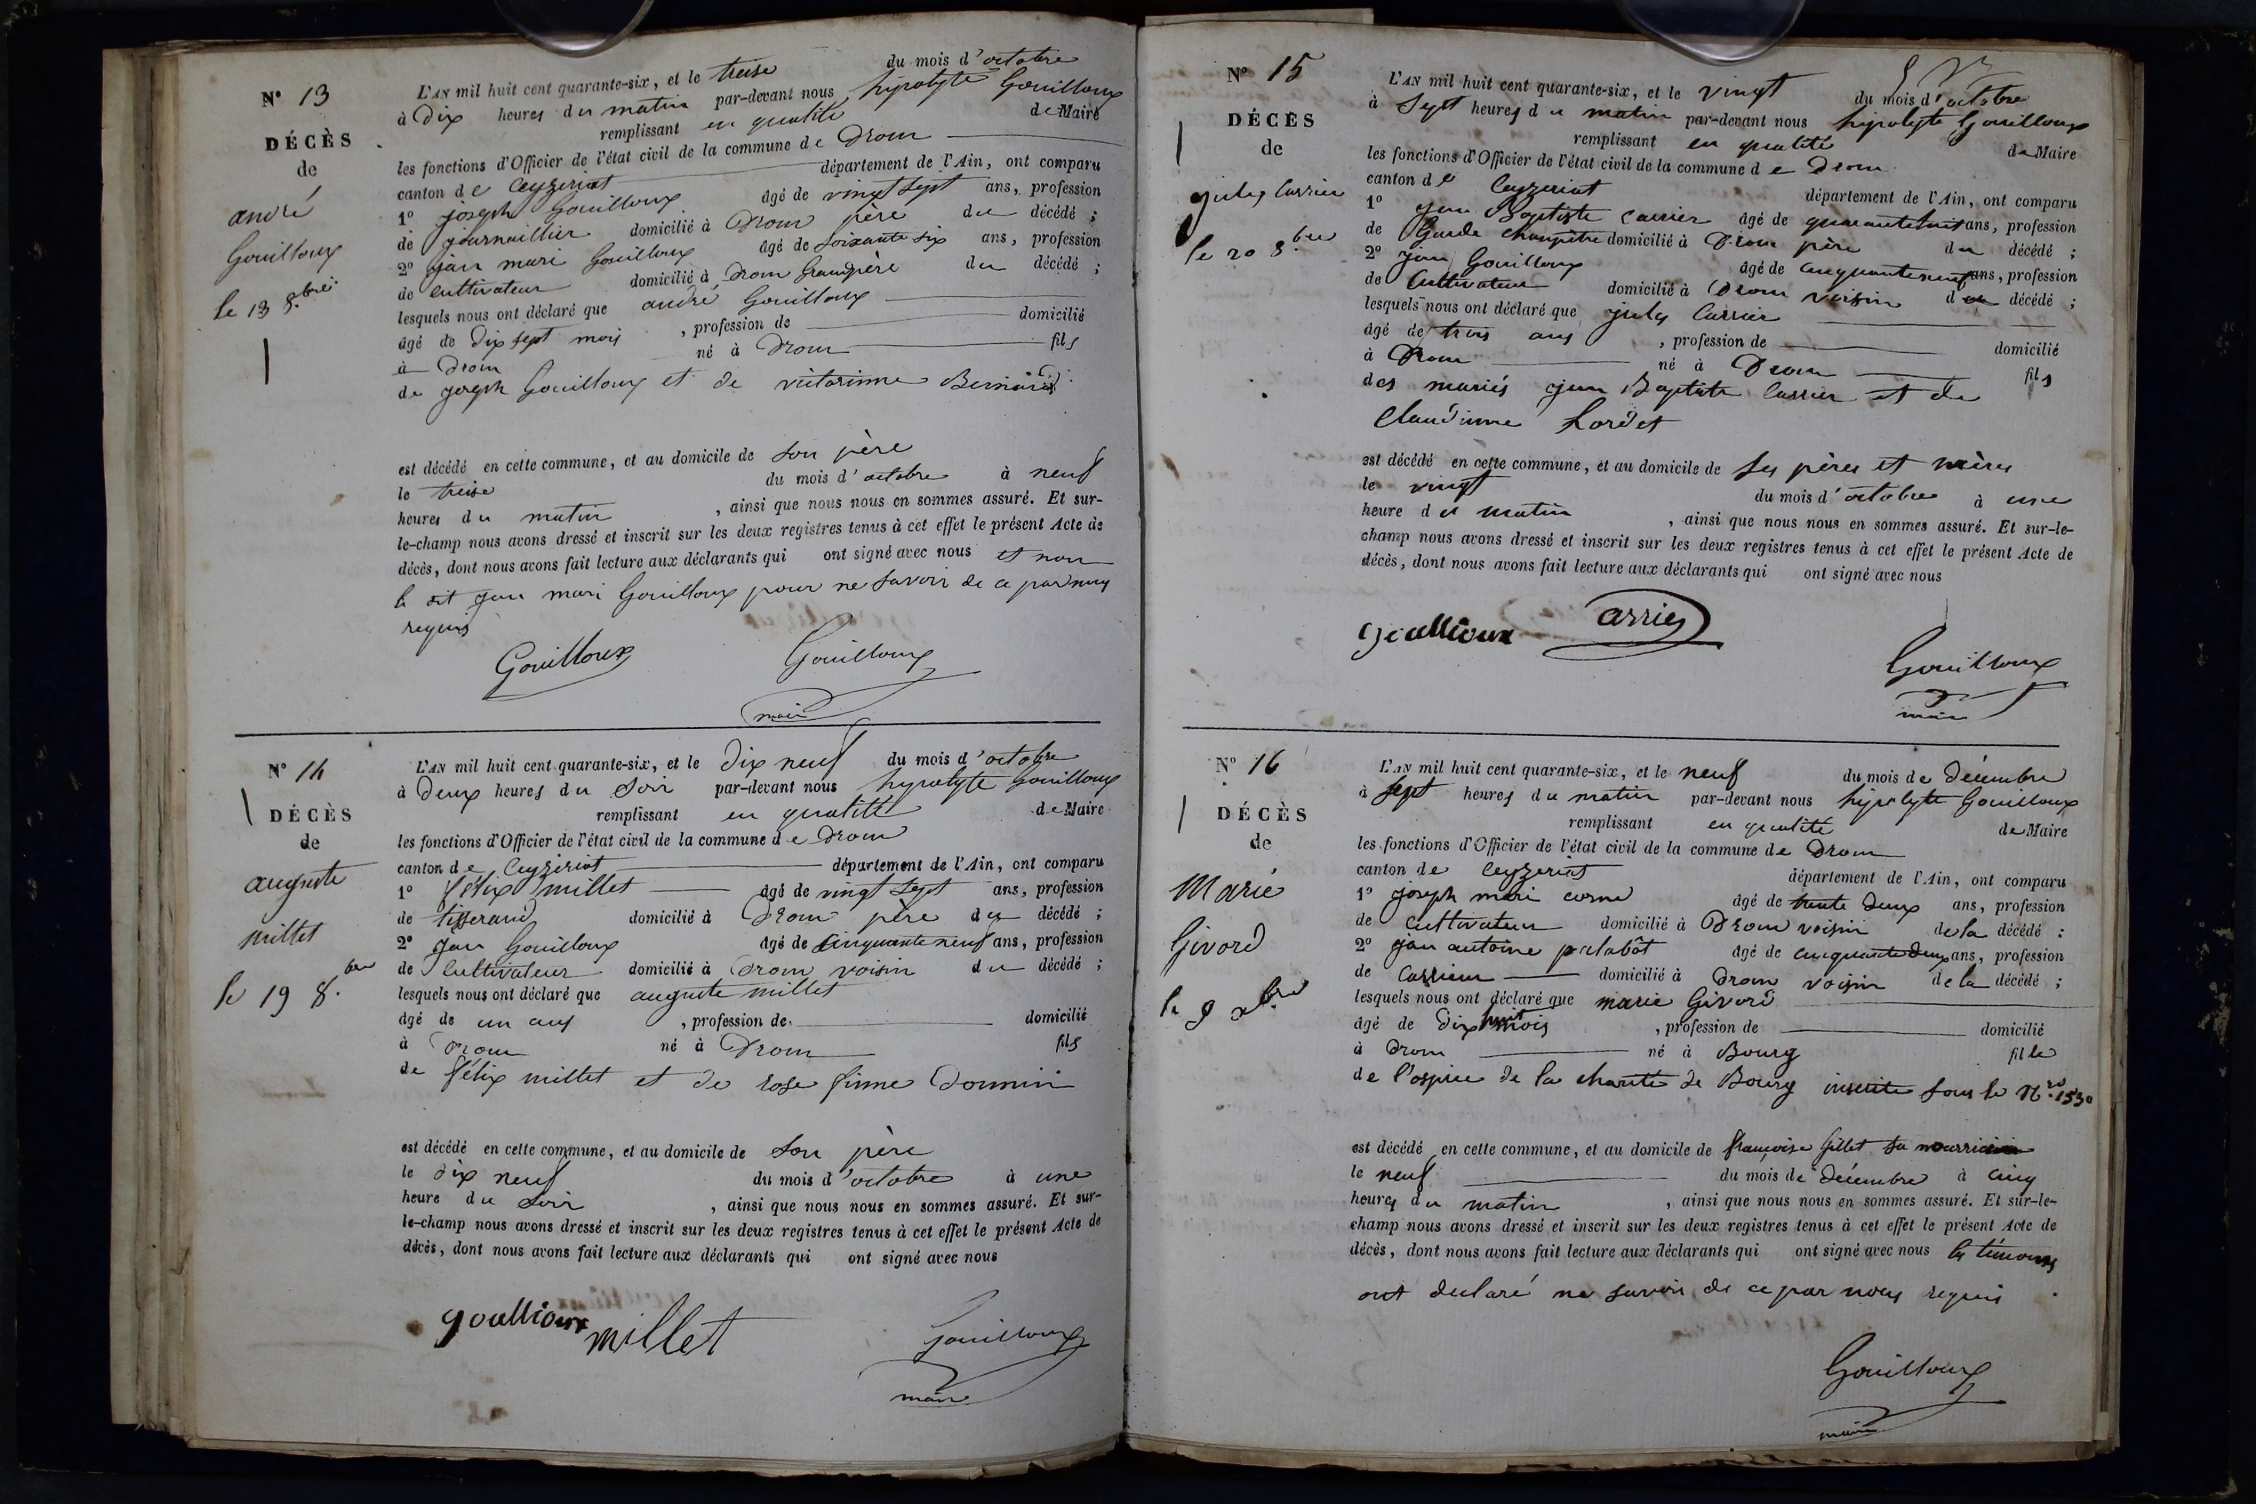 N° 13
DÉCÈS
de
andré
Gouilloux
le 13 8.bre
L'AN mil huit cent quarante-six, et le treise du mois d'octobre
à Dix heures du matin par-devant nous hipolyte Gouilloux
remplissant en qualité de Maire
les fonctions d'Officier de l'état civil de la commune de Drom
canton de Ceyzeriat département de l'Ain, ont comparu
1° joseph Gouilloux âgé de vingt sept ans, profession
de journaillier domicilié à Drom père du décédé ;
2° jean marie Gouilloux âgé de soixante six ans, profession
de cultivateur domicilié à Drom Grandpère du décédé ;
lesquels nous ont déclaré que andré Gouilloux
âgé de dix sept mois , profession de domicilié
à Drom né à Drom fils
de joseph Gouilloux et de victorinne Bernard
est décédé en cette commune, et au domicile de son père
le treise du mois d'octobre à neuf
heures du matin , ainsi que nous nous en sommes assuré. Et sur-
le-champ nous avons dressé et inscrit sur les deux registres tenus à cet effet le présent Acte de
décès, dont nous avons fait lecture aux déclarants qui ont signé avec nous et non
le dit jean marie Gouilloux pour ne savoir de ce par nous
requis
Gouilloux Gouilloux
maire
N° 14
DÉCÈS
de
auguste
millet
le 19 8.bre
L'AN mil huit cent quarante-six, et le dix neuf du mois d'octobre
à Deux heures du soir par-devant nous hypolyte Gouilloux
remplissant en qualité de Maire
les fonctions d'Officier de l'état civil de la commune de Drom
canton de Ceyzériat département de l'Ain, ont comparu
1° félix millet âgé de vingt sept ans, profession
de tisserand domicilié à Drom père du décédé ;
2° jean Gouilloux âgé de cinquante neuf ans, profession
de cultivateur domicilié à Drom voisin du décédé ;
lesquels nous ont déclaré que auguste millet
âgé de un ans , profession de domicilié
à Drom né à Drom fils
de félix millet et de rose finne
est décédé en cette commune, et au domicile de son père
le dix neuf du mois d'octobre à une
heure du soir , ainsi que nous nous en sommes assuré. Et sur-
le-champ nous avons dressé et inscrit sur les deux registres tenus à cet effet le présent Acte de
décès, dont nous avons fait lecture aux déclarants qui ont signé avec nous
goullioux millet Gouilloux
maire
N° 15
DÉCÈS
de
jules Carrier
le 20 8.bre
L'AN mil huit cent quarante-six, et le vingt du mois d'octobre
à sept heures du matin par-devant nous hipolyte Gouilloux
remplissant en qualité de Maire
les fonctions d'Officier de l'état civil de la commune de Drom
canton de Ceyzeriat département de l'Ain, ont comparu
1° jean Baptiste Carrier âgé de quarante huit ans, profession
de Garde champêtre domicilié à Drom père du décédé ;
2° jean Gouilloux âgé de cinquante neuf ans, profession
de Cultivateur domicilié à Drom voisin du décédé ;
lesquels nous ont déclaré que jules Carrier
âgé de trois ans , profession de domicilié
à Drom né à Drom fils
des mariés jean Baptiste Carrier et de
Claudinne
est décédé en cette commune, et au domicile de ses pères et mères
le vingt du mois d'octobre à une
heure du matin , ainsi que nous nous en sommes assuré. Et sur-le-
champ nous avons dressé et inscrit sur les deux registres tenus à cet effet le présent Acte de
décès, dont nous avons fait lecture aux déclarants qui ont signé avec nous
goullioux Carrier
Gouilloux
maire
N° 16
DÉCÈS
de
Marie
Givord
le 9 xbre
L'AN mil huit cent quarante-six, et le neuf du mois de décembre
à sept heures du matin par-devant nous hipolyte Gouilloux
remplissant en qualité de Maire
les fonctions d'Officier de l'état civil de la commune de Drom
canton de Ceyzeriat département de l'Ain, ont comparu
1° joseph marie corne âgé de trente deux ans, profession
de cultivateur domicilié à Drom voisin de la décédé ;
2° jean antoine palabôt âgé de cinquante deux ans, profession
de Carrieur domicilié à Drom voisin de la décédé ;
lesquels nous ont déclaré que marie Givord
âgé de dix huit mois , profession de domicilié
à Drom né à Bourg fille
de l'ospice de la charité de Bourg inscrite sous le N.ro 1530
est décédé en cette commune, et au domicile de françoise Gillet sa nourricière
le neuf du mois de décembre à cinq
heures du matin , ainsi que nous nous en sommes assuré. Et sur-le-
champ nous avons dressé et inscrit sur les deux registres tenus à cet effet le présent Acte de
décès, dont nous avons fait lecture aux déclarants qui ont signé avec nous les témoins
ont declaré ne savoir de ce par nous requis
Gouilloux
maire